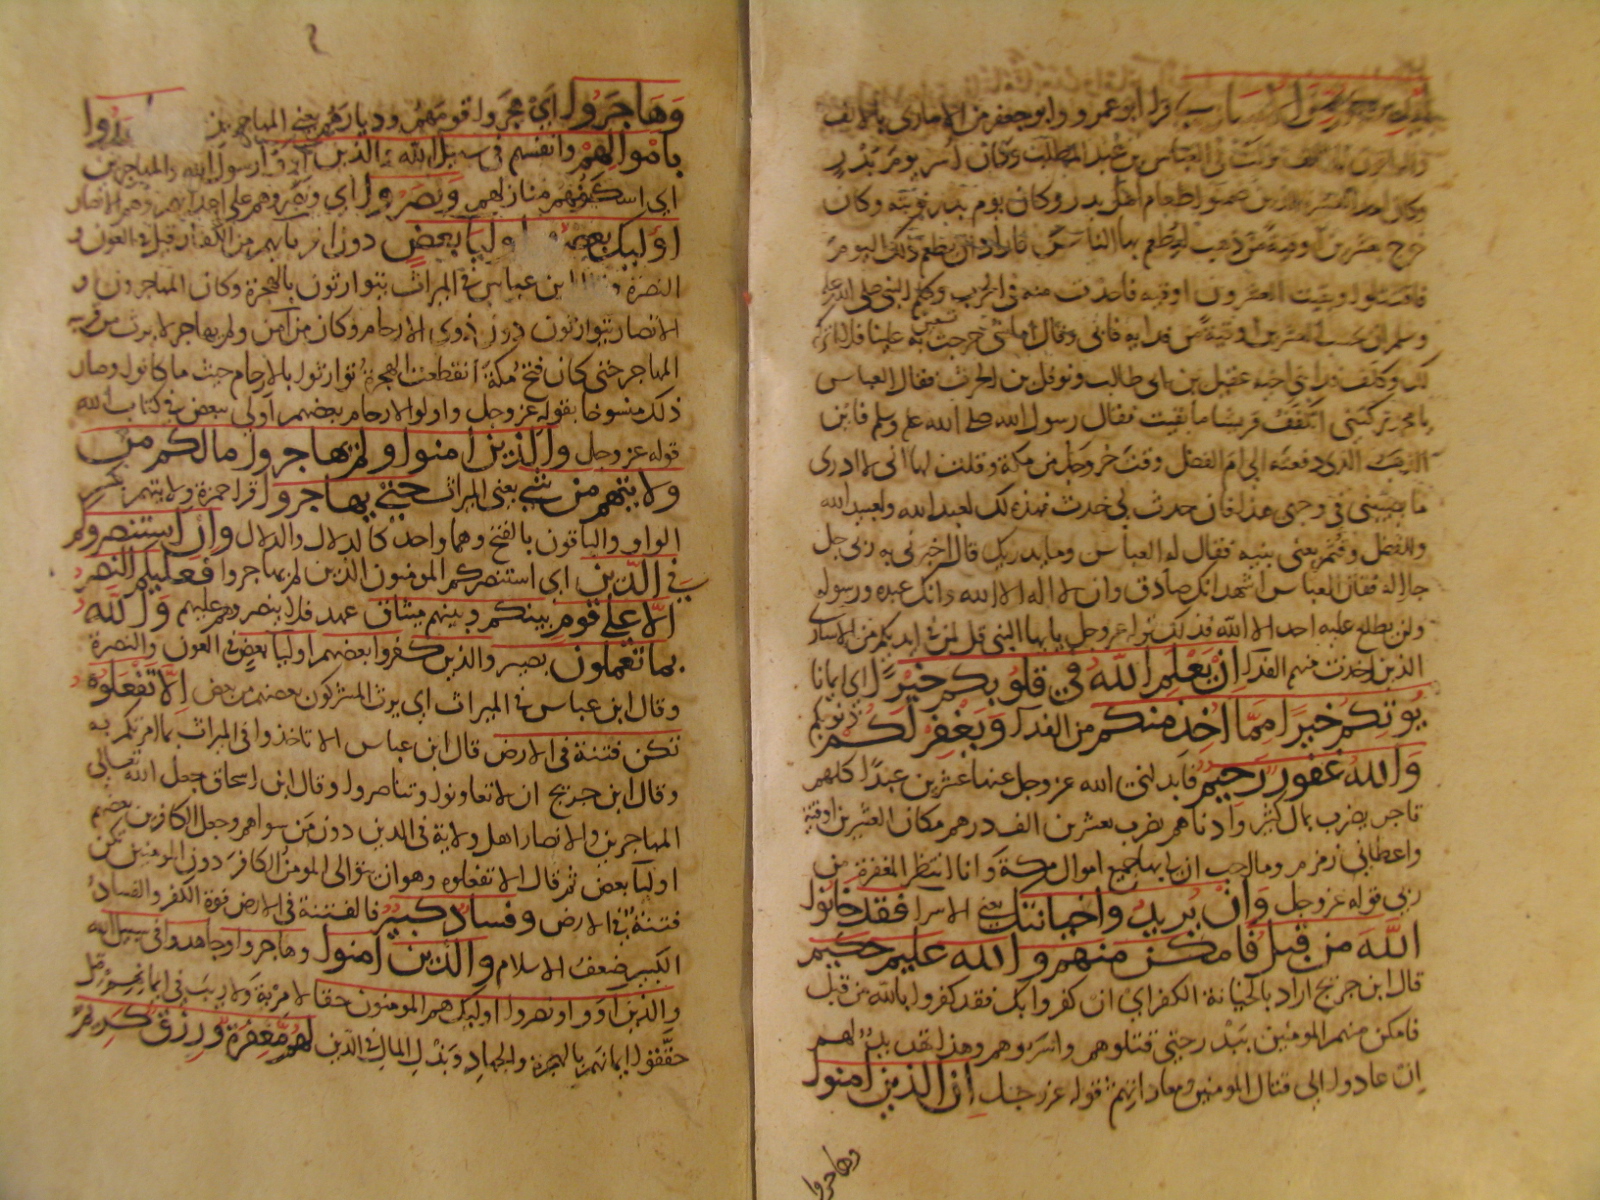 قرا ابو عمرو وابو جعفر من الاسارى بالالف
نزلت في العباس بن عبد المطلب وكان اسر يوم بدر
وكان احد العشرة الذين ضمنوا اطعام اهل بدر وكان يوم بدر نوبته وكان
خرج بعشرين اوقية من ذهب ليطعم بها الناس فاراد ان يطعم ذلك اليوم
فاقتتلوا وبقيت العشرون اوقية فاخذت منه في الحرب وكلم النبي صلى الله عليه
وسلم ان يحتسب العشرين اوقية من فدايه فابى وقال اما شي خرجت تستعين به علينا فلا اتركه
لك وكلف فدا بني اخيه عقيل بن ابي طالب ونوفل بن الحرث فقال العباس
يا محمد تركتني اتكفف قريشا ما بقيت فقال رسول الله صلى الله عليه وسلم فاين
الذهب الذي دفعته الى ام الفضل وقت خروجك من مكة وقلت لها اني لا ادري
ما يصيبني في وجهي هذا فان حدث بي حدث فهذا لك لعبد الله ولعبيد الله
وللفضل وقثم يعني بنيه فقال له العباس وما يدريك قال اخبرني به ربي جل
جلاله فقال العباس اشهد انك صادق وان لا اله الا الله وانك عبده ورسوله
ولن يطلع عليه احد الا الله فذلك قوله عز وجل يا ايها النبي قل لمن في ايديكم من الاسارى
الذين اخذت منهم الفدا ان يعلم الله في قلوبكم خيرا اي ايمانا
يوتكم خيرا مما اخذ منكم من الفدا ويغفر لكم ذنوبكم
والله غفور رحيم فابدلني الله عز وجل عنها عشرين عبدا كلهم
تاجر يضرب بمال كثير وادناهم يضرب بعشرين الف درهم مكان العشرين اوقية
واعطاني زمزم وما احب ان لي بها جميع اموال مكة وانا انتظر المغفرة من
ربي قوله عز وجل وان يريدوا خيانتك يعني الاسرا فقد خانوا
الله من قبل فامكن منهم والله عليم حكيم
قال ابن جريج اراد بالخيانة الكفر اي ان كفروا بك فقد كفروا بالله من قبل
فامكن منهم المومنين ببدر حتى قتلوهم واسروهم وهذا تهديد لهم
ان عادوا الى قتال المومنين ومعاداتهم قوله عز وجل ان الذين امنوا
وهاجروا
وهاجروا اي هجروا قومهم وديارهم يعني المهاجرين وجاهدوا
باموالهم وانفسهم في سبيل الله والذين اووا رسول الله والمهاجرين
اي اسكنوهم منازلهم ونصروا اي ونصروهم على اعدايهم وهم الانصار
اوليك بعضهم اوليا بعض دون اقربايهم من الكفار قيل في العون و
النصرة وقال ابن عباس في الميراث يتوارثون بالهجرة وكان المهاجرون و
الانصار يتوارثون دون ذوي الارحام وكان من امن ولم يهاجر لا يرث من قريبه
المهاجر حتى كان فتح مكة انقطعت الهجرة توارثوا بالارحام حيث ما كانوا وصار
ذلك منسوخا بقوله عز وجل واولوا الارحام بعضهم اولى ببعض في كتاب الله
قوله عز وجل والذين امنوا ولم يهاجروا ما لكم من
ولايتهم من شي يعني الميراث حتى يهاجروا قرا حمزة ولايتهم بكسر
الواو والباقون بالفتح وهما واحد كالدلال والدلال وان استنصروكم
في الدين اي استنصركم المومنون الذين لم يهاجروا فعليكم النصر
الا على قوم بينكم وبينهم ميثاق عهد فلا ينصروهم عليهم والله
بما تعملون بصير والذين كفروا بعضهم اوليا بعض في العون والنصرة
وقال ابن عباس في الميراث اي يرث المشركون بعضهم من بعض الا تفعلوه
تكن فتنة في الارض قال ابن عباس الا تاخذوا في الميراث بما امرتكم به
وقال ابن جريج ان لا تعاونوا وتناصروا وقال ابن اسحاق جعل الله تعالى
المهاجرين والانصار اهل ولاية في الدين دون من سواهم وجعل الكافرين بعضهم
اوليا بعض ثم قال الا تفعلوه وهو ان يتولى المومن الكافر دون المومنين تكن
فتنة في الارض وفساد كبير فالفتنة في الارض قوة الكفر والفساد
الكبير ضعف الاسلام والذين امنوا وهاجروا وجاهدوا في سبيل الله
والذين اووا ونصروا اوليك هم المومنون حقا لا مرية ولا ريب في ايمانهم قيل
حققوا ايمانهم بالهجرة والجهاد وبذل المال في الدين لهم مغفرة ورزق كريم